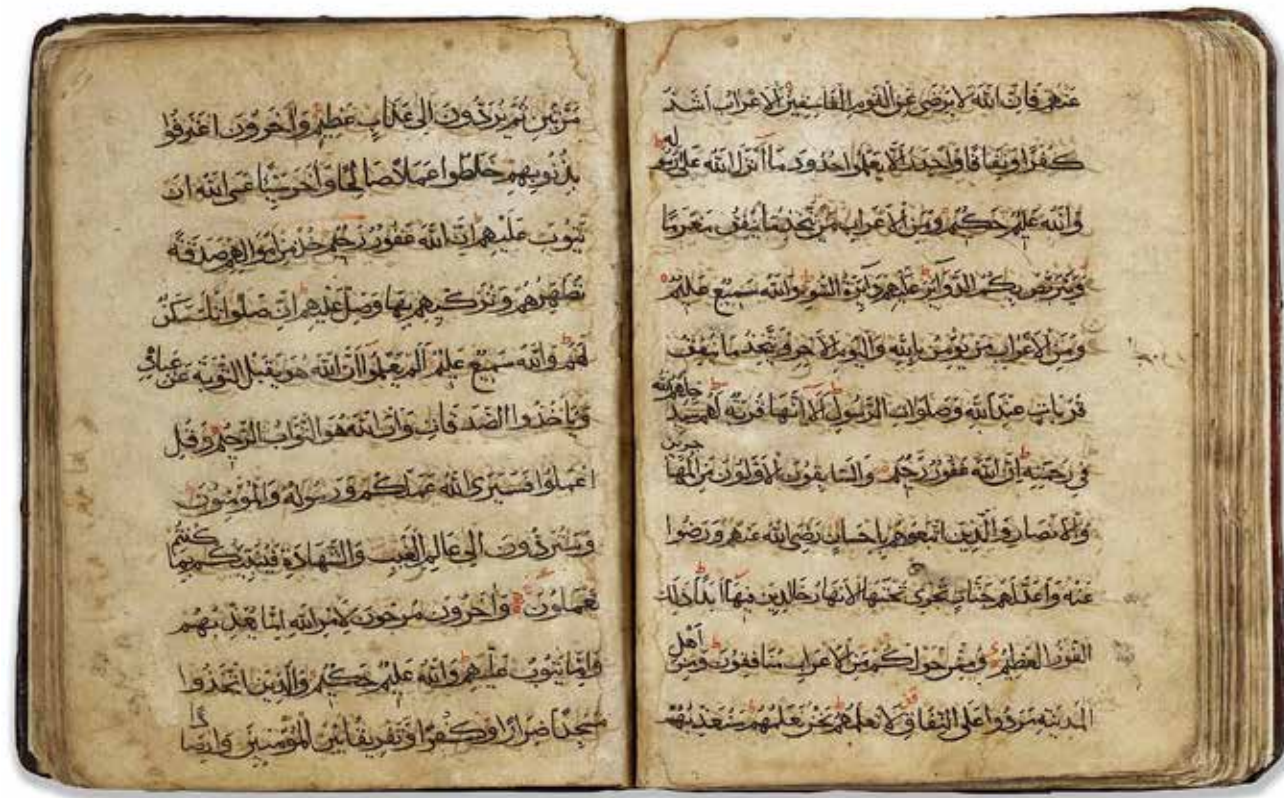 عنهم فان الله لا يرضى عن القوم الفاسقين الاعراب اشد
كفرا ونفاقا واجدر الا يعلموا حدود ما انزل الله على رسوله
والله عليم حكيم ومن الاعراب من يتخذ ما ينفق مغرما
ويتربص بكم الدوائر عليهم دائرة السوء والله سميع عليم
ومن الاعراب من يؤمن بالله واليوم الاخر ويتخذ ما ينفق
قربات عند الله وصلوات الرسول الا انها قربة لهم سيدخلهم الله
في رحمته ان الله غفور رحيم والسابقون الاولون من المهاجرين
والانصار والذين اتبعوهم باحسان رضي الله عنهم ورضوا
عنه واعد لهم جنات تجري تحتها الانهار خالدين فيها ابدا ذلك
الفوز العظيم وممن حولكم من الاعراب منافقون ومن اهل
المدينة مردوا على النفاق لا تعلمهم نحن نعلمهم سنعذبهم
مرتين ثم يردون الى عذاب عظيم واخرون اعترفوا
بذنوبهم خلطوا عملا صالحا واخر سيئا عسى الله ان
يتوب عليهم ان الله غفور رحيم خذ من اموالهم صدقة
تطهرهم وتزكيهم بها وصل عليهم ان صلواتك سكن
لهم والله سميع عليم الم يعلموا ان الله هو يقبل التوبة عن عباده
وياخذ الصدقات وان الله هو التواب الرحيم وقل
اعملوا فسيرى الله عملكم ورسوله والمؤمنون
وستردون الى عالم الغيب والشهادة فينبئكم بما كنتم
تعملون واخرون مرجون لامر الله اما يعذبهم
واما يتوب عليهم والله عليم حكيم والذين اتخذوا
مسجدا ضرارا وكفرا وتفريقا بين المؤمنين وارصادا